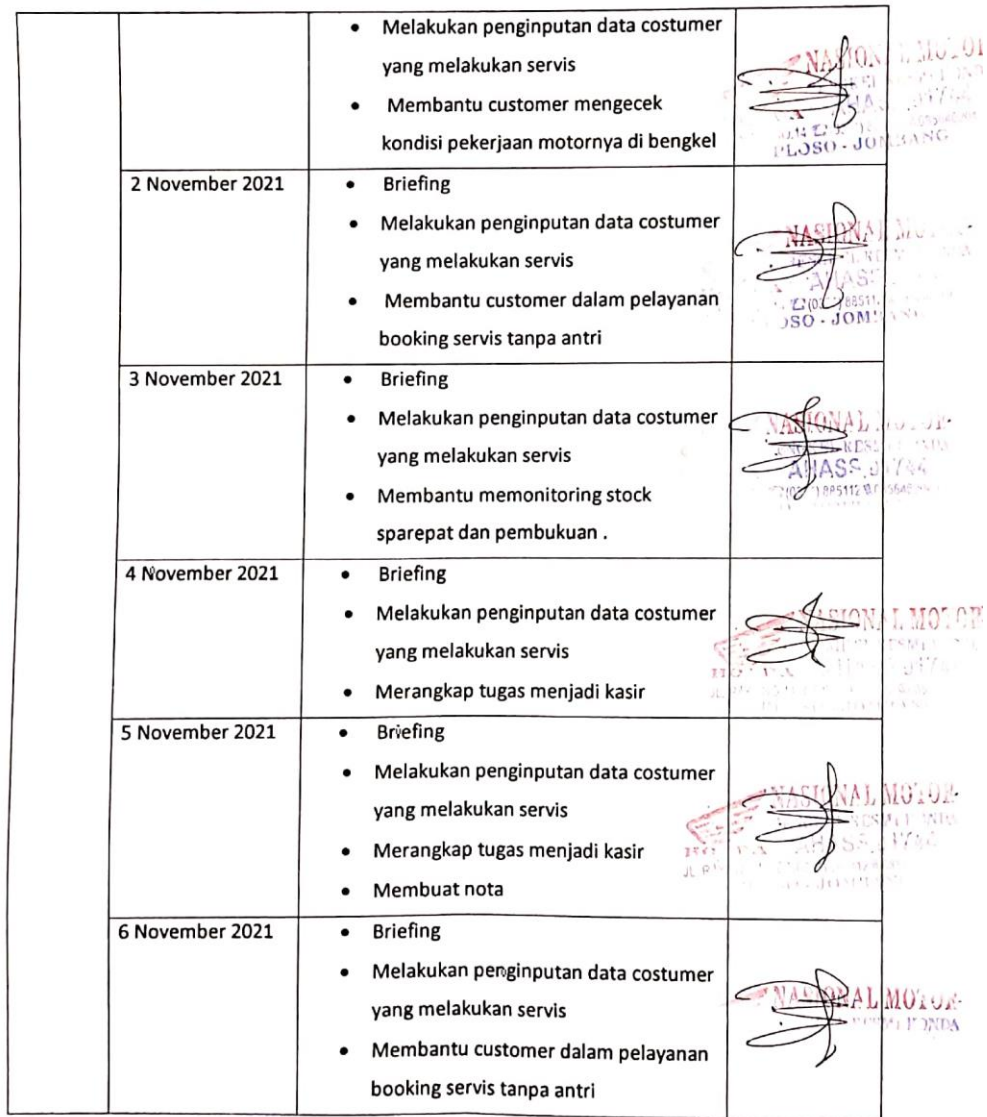 • Melakukan penginputan data costumer
yang melakukan servis
• Membantu customer mengecek
kondisi pekerjaan motornya di bengkel
NASIONAL MOTOR
PLOSO - JOMBANG
2 November 2021
• Briefing
• Melakukan penginputan data costumer
yang melakukan servis
• Membantu customer dalam pelayanan
booking servis tanpa antri
NASIONAL
AHASS
3 November 2021
• Briefing
• Melakukan penginputan data costumer
yang melakukan servis
• Membantu memonitoring stock
sparepat dan pembukuan .
NASIONAL
AHASS
4 November 2021
• Briefing
• Melakukan penginputan data costumer
yang melakukan servis
• Merangkap tugas menjadi kasir
NASIONAL MOTOR
5 November 2021
• Briefing
• Melakukan penginputan data costumer
yang melakukan servis
• Merangkap tugas menjadi kasir
• Membuat nota
NASIONAL MOTOR
6 November 2021
• Briefing
• Melakukan penginputan data costumer
yang melakukan servis
• Membantu customer dalam pelayanan
booking servis tanpa antri
NASIONAL MOTOR
HONDA